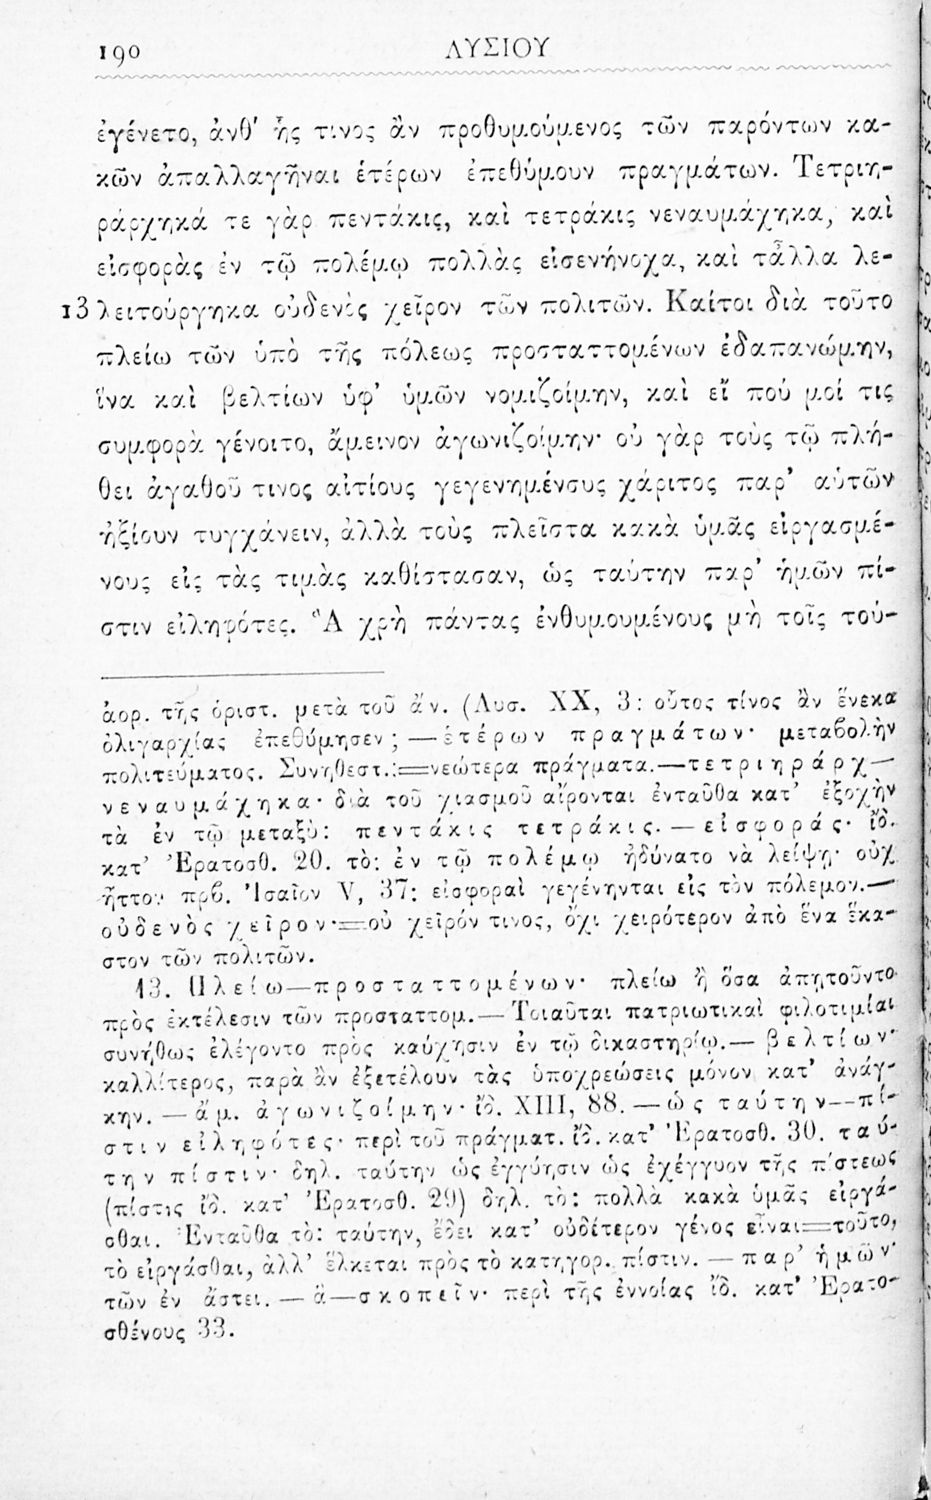 190 ΛΥΣΙΟΥ
ἐγένετο, ἀνθ' ἧς τινος ἂν προθυμούμενος τῶν παρόντων κα-
κῶν ἀπαλλαγῆναι ἑτέρων ἐπεθύμουν πραγμάτων. Τετριη-
ράρχηκά τε γὰρ πεντάκις, καὶ τετράκις νεναυμάχηκα, καὶ
εἰσφορὰς ἐν τῷ πολέμῳ πολλὰς εἰσενήνοχα, καὶ τἆλλα λε-
13 λειτούργηκα οὐδενὸς χεῖρον τῶν πολιτῶν. Καίτοι διὰ τοῦτο
πλείω τῶν ὑπὸ τῆς πόλεως προσταττομένων ἐδαπανώμην,
ἵνα καὶ βελτίων ὑφ' ὑμῶν νομιζοίμην, καὶ εἴ πού μοί τις
συμφορὰ γένοιτο, ἄμεινον ἀγωνιζοίμην· οὐ γὰρ τοὺς τῷ πλή-
θει ἀγαθοῦ τινος αἰτίους γεγενημένους χάριτος παρ' αὐτῶν
ἠξίουν τυγχάνειν, ἀλλὰ τοὺς πλεῖστα κακὰ ὑμᾶς εἰργασμέ-
νους εἰς τὰς τιμὰς καθίστασαν, ὡς ταύτην παρ' ἡμῶν πί-
στιν εἰληφότες. Ἃ χρὴ πάντας ἐνθυμουμένους μὴ τοῖς τού-
ἀορ. τῆς ὁριστ. μετὰ τοῦ ἄν. (Λυσ. XX, 3: οὗτος τίνος ἂν ἕνεκα
ὀλιγαρχίας ἐπεθύμησεν; — ἑτέρων πραγμάτων· μεταβολὴν
πολιτεύματος. Συνηθεστ.:=νεώτερα πράγματα.—τετριηράρχ—
νεναυμάχηκα· διὰ τοῦ χιασμοῦ αἴρονται ἐνταῦθα κατ' ἐξοχὴν
τὰ ἐν τῷ μεταξὺ: πεντάκις τετράκις. — εἰσφοράς· ἰδ.
κατ' Ἐρατοσθ. 20. τὸ: ἐν τῷ πολέμῳ ἠδύνατο νὰ λείψῃ· οὐχ
ἧττον πρβ. Ἰσαῖον V, 37: εἰσφοραὶ γεγένηνται εἰς τὸν πόλεμον.—
οὐδενὸς χεῖρον·=οὐ χεῖρόν τινος, ὄχι χειρότερον ἀπὸ ἕνα ἕκα-
στον τῶν πολιτῶν.
13. Πλείω—προσταττομένων· πλείω ἢ ὅσα ἀπῃτοῦντο
πρὸς ἐκτέλεσιν τῶν προσταττομ.— Τοιαῦται πατριωτικαὶ φιλοτιμίαι
συνήθως ἐλέγοντο πρὸς καύχησιν ἐν τῷ δικαστηρίῳ.— βελτίων·
καλλίτερος, παρὰ ἂν ἐξετέλουν τὰς ὑποχρεώσεις μόνον κατ' ἀνάγ-
κην. — ἄμ. ἀγωνιζοίμην· ἰδ. XIII, 88. — ὡς ταύτην—πί-
στιν εἰληφότες· περὶ τοῦ πράγματ. ἰδ. κατ' Ἐρατοσθ. 30. ταύ-
την πίστιν· δηλ. ταύτην ὡς ἐγγύησιν ὡς ἐχέγγυον τῆς πίστεως
(πίστις ἰδ. κατ' Ἐρατοσθ. 29) δηλ. τὸ: πολλὰ κακὰ ὑμᾶς εἰργά-
σθαι. Ἐνταῦθα τὸ: ταύτην, ἔδει κατ' οὐδέτερον γένος εἶναι=τοῦτο,
τὸ εἰργάσθαι, ἀλλ' ἕλκεται πρὸς τὸ κατηγορ. πίστιν. — παρ' ἡμῶν·
τῶν ἐν ἄστει. — ἃ—σκοπεῖν· περὶ τῆς ἐννοίας ἰδ. κατ' Ἐρατο-
σθένους 33.